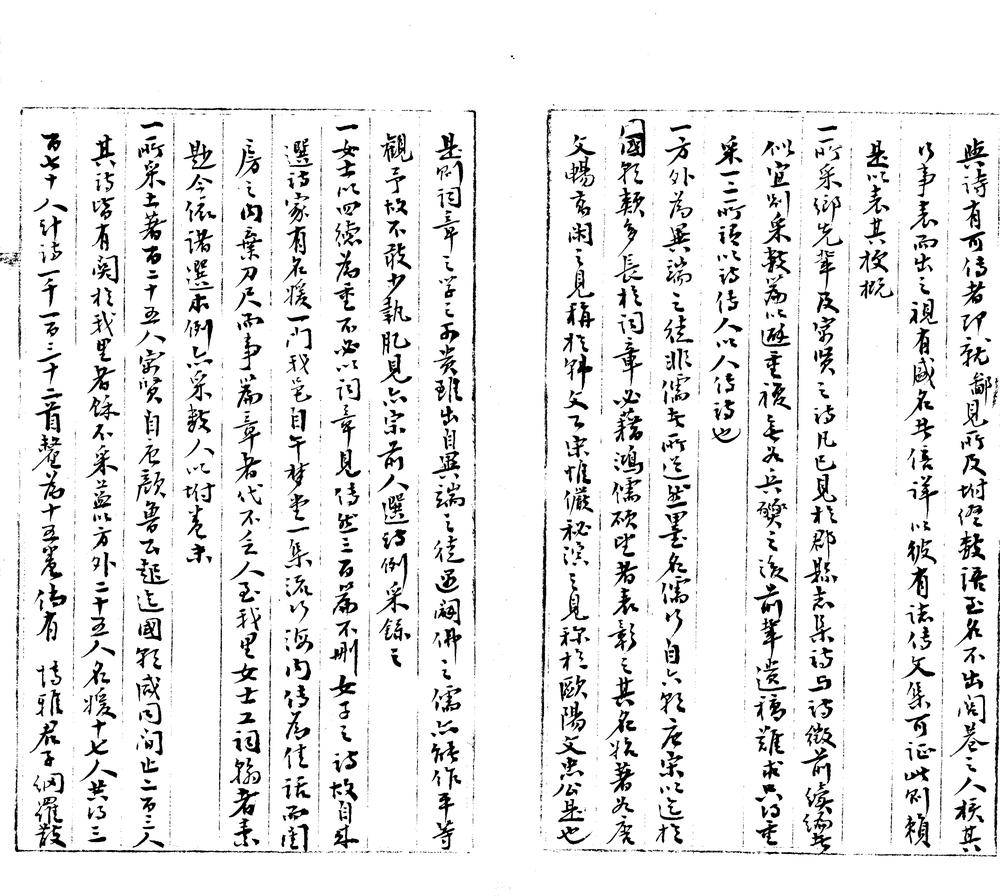 與詩有可傳者即就鄙見所及坿綴數語至名不出閭巷之人核其
以事表而出之視有盛名者倍詳以彼有誌傳文集可証此則賴
是以表其梗概
一所采鄉先輩及宗賢之詩凡已見於郡縣志集詩与詩徵前續編者
似宜別采數篇以避重複無如兵燹之後前輩遺稿難求只得重
采一二所謂以詩傳人以人傳詩也
一方外為異端之徒非儒者所道然墨名儒行自六朝唐宋以迄於
國朝類多長於詞章必藉鴻儒碩望者表彰之其名始著如唐
文暢高閑之見稱於韓文公宋惟儼秘演之見称於歐陽文忠公是也
是則詞章之學之可貴雖出自異端之徒過闢佛之儒亦能作平等
觀予故不敢少執肊見亦宗前人選詩例采錄之
一女士以四德為重不必以詞章見傳然三百篇不刪女子之詩故自來
選詩家有名媛一門我邑自午夢堂一集流行海內傳為佳話而閨
房之內棄刀尺而事篇章者代不乏人至我里女士工詞翰者素
尟今依諸選本例亦采數人以坿卷末
一所采土著百二十五人宗賢自唐顏魯公起迄國朝咸同間止二百三人
其詩皆有関於我里者餘不采益以方外二十五人名媛十七人共得三
百七十人計詩一千一百三十二首釐為十五卷倘有 博雅君子網羅散